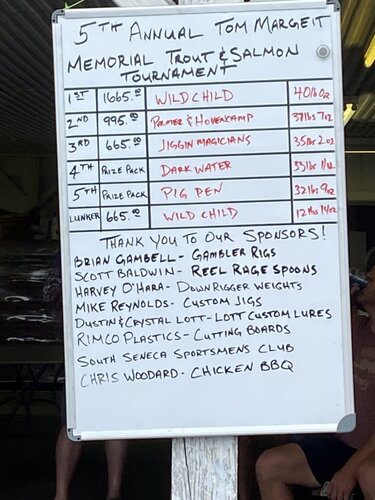 5TH ANNUAL TOM MARGEIT
MEMORIAL TROUT & SALMON
TOURNAMENT
1ST 1665.00 WILD CHILD 40lb 0oz
2ND 995.00 PALMER & HOVENCAMP 37lbs 7oz
3RD 665.00 JIGGIN MAGICIANS 35lbs 2oz
4TH PRIZE PACK DARK WATER 33lbs 11oz
5TH PRIZE PACK PIG PEN 32lbs 9oz
LUNKER 665.00 WILD CHILD 12lbs 14oz
THANK YOU TO OUR SPONSORS!
BRIAN GAMBELL - GAMBLER RIGS
SCOTT BALDWIN - REEL RAGE SPOONS
HARVEY O'HARA - DOWNRIGGER WEIGHTS
MIKE REYNOLDS - CUSTOM JIGS
DUSTIN & CRYSTAL LOTT - LOTT CUSTOM LURES
RIMCO PLASTICS - CUTTING BOARDS
SOUTH SENECA SPORTSMENS CLUB
CHRIS WOODARD - CHICKEN BBQ